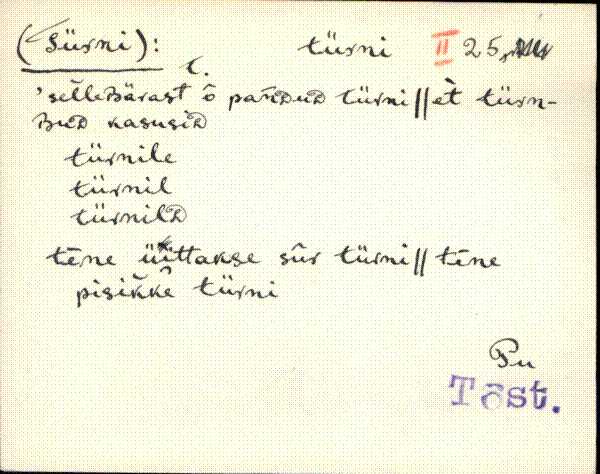 (Sürni): türni II 25,
t.
'selleʙärast ȏ pańdud türni || èt türn-
ʙud kasusid
türnile
türnil
türnild
tēne üittakse sûr türni || tēne
pisikke türni
Pu
Tõst.